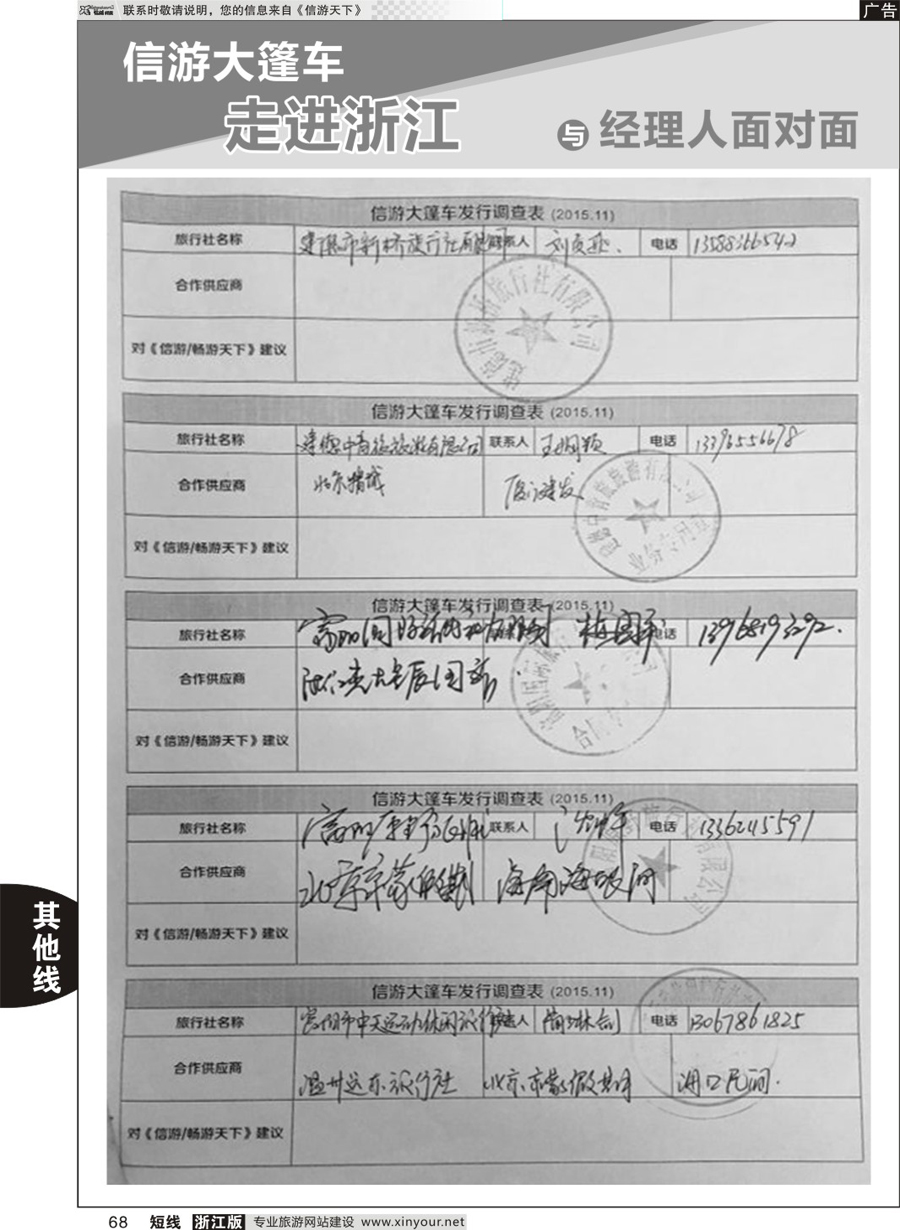 联系时敬请说明，您的信息来自《信游天下》
广告
信游大篷车
走进浙江
与 经理人面对面
信游大篷车发行调查表 (2015.11)
旅行社名称 建德市新桥旅行社有限 联系人 电话 13588366542
合作供应商
对《信游/畅游天下》建议
信游大篷车发行调查表 (2015.11)
旅行社名称 建德中青旅旅游有限公司 联系人 电话 13396556678
合作供应商 北京精诚 厦门建发
对《信游/畅游天下》建议
信游大篷车发行调查表 (2015.11)
旅行社名称 富阳国际 电话 13968193292.
合作供应商
对《信游/畅游天下》建议
信游大篷车发行调查表 (2015.11)
旅行社名称 富阳 联系人 电话 13362115591
合作供应商 北京京蒙 海南海航民间
对《信游/畅游天下》建议
信游大篷车发行调查表 (2015.11)
旅行社名称 富阳市中天运动休闲旅行社 系人 电话 13067861825
合作供应商 温州远东旅行社 北京京蒙假期 海口民间.
对《信游/畅游天下》建议
其他线
68 短线 浙江版 专业旅游网站建设 www.xinyour.net